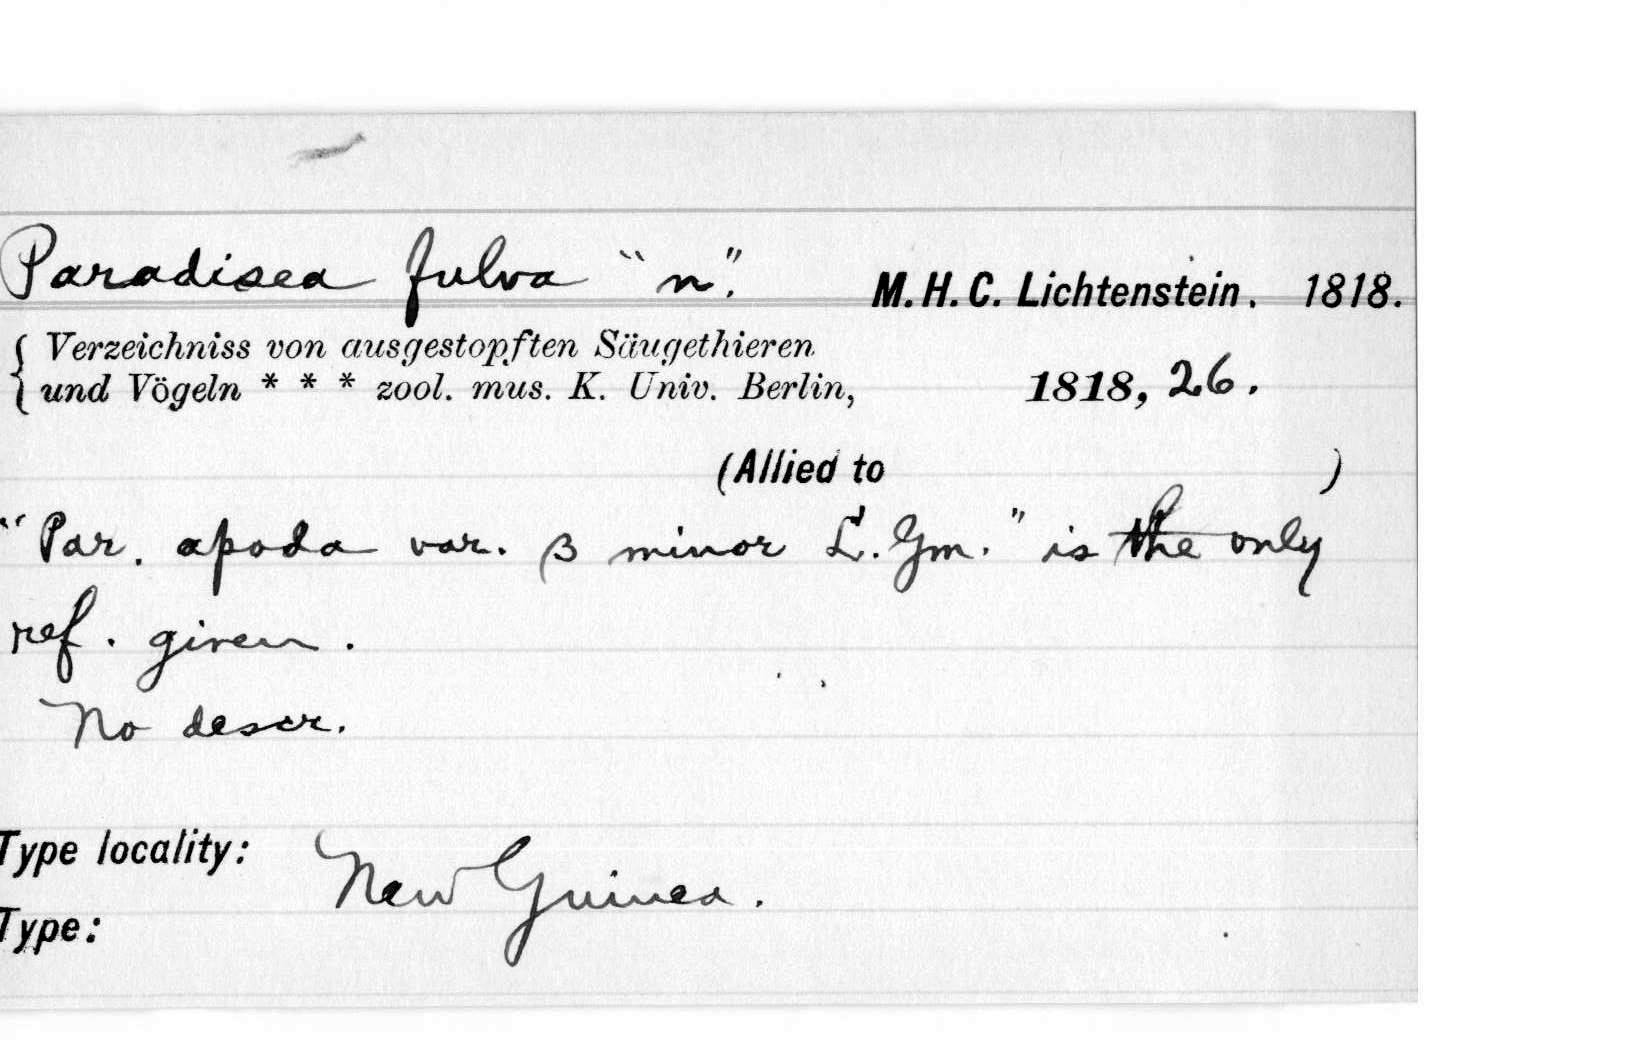 Paradisea fulva "n". M. H. C. Lichtenstein. 1818.
{ Verzeichniss von ausgestopften Säugethieren
und Vögeln * * * zool. mus. K. Univ. Berlin, 1818, 26.
(Allied to )
"Par. apoda var. β minor L. Gm." is the only
ref. given.
No descr.
Type locality: New Guinea.
Type: